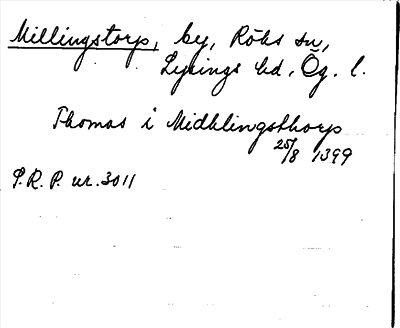 Millingstorp, by, Röks sn,
Lysings hd, Ög. l.
Thomas i Midhlingsthorp
25/8 1399
P.R.P. nr. 3011